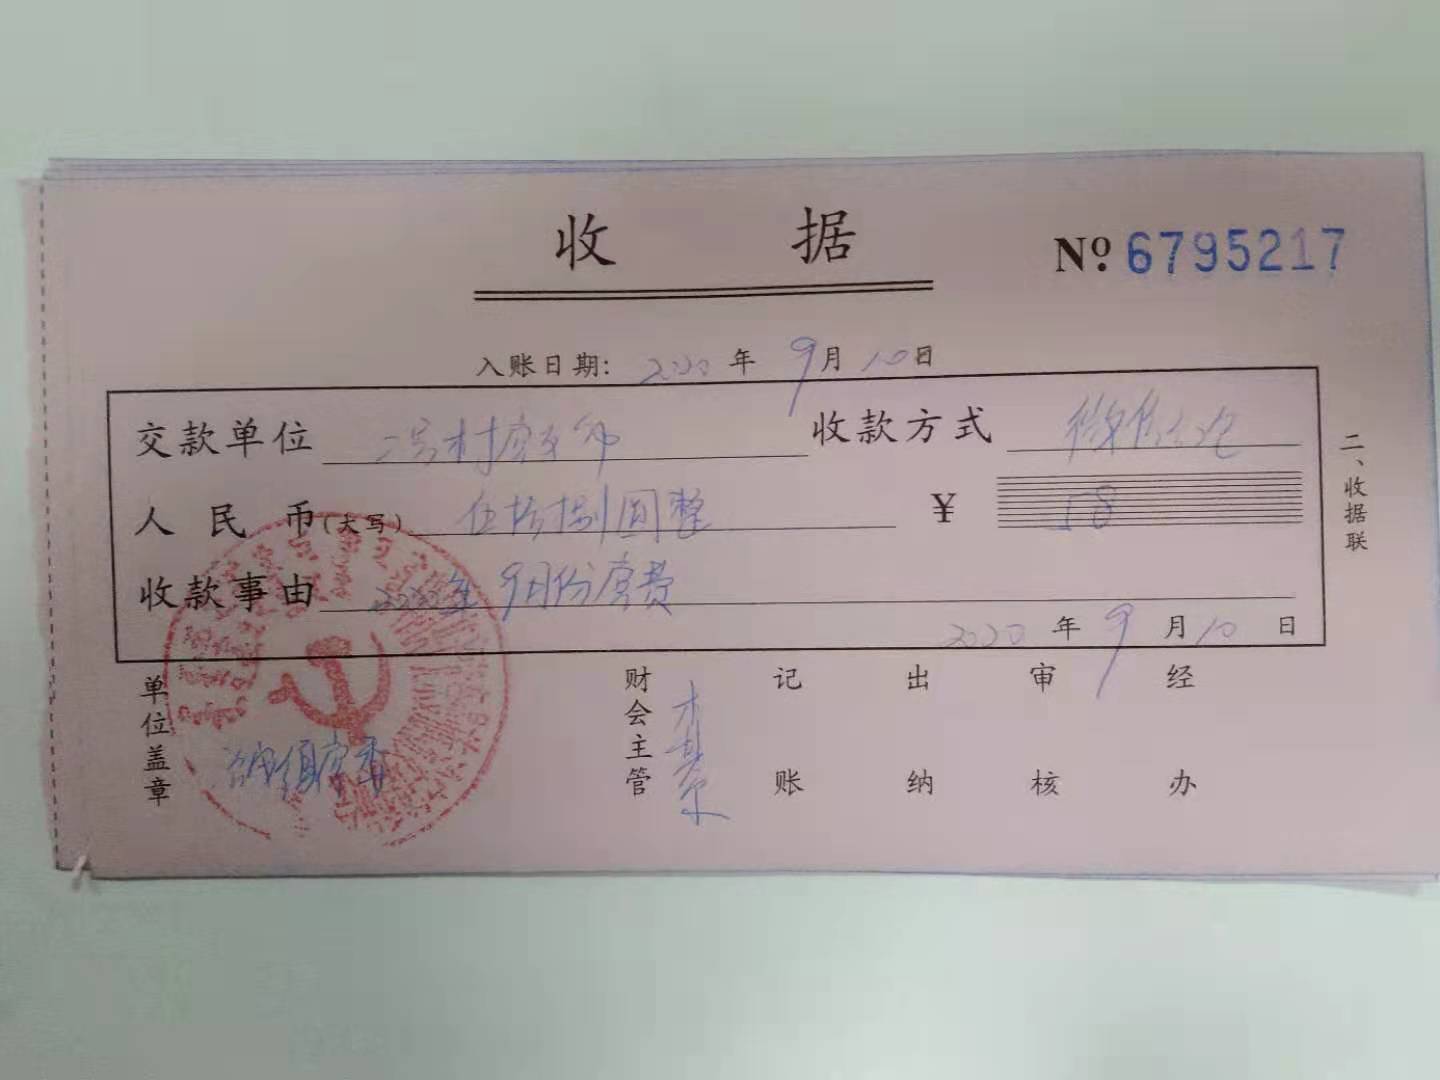 收 据
Nº 6795217
入账日期: 2020 年 9 月 10 日
交款单位 二号村党支部 收款方式 微信红包
人民币(大写) 伍拾捌圆整 ¥ 58
收款事由 2020年9月份党费
2020 年 9 月 10 日
二、收据联
单位盖章 镇党委
财会主管 记账 出纳 审核 经办